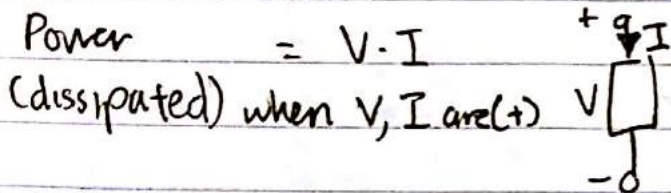 Power = V·I
(dissipated) when V, I are (+)
+ I
V
-